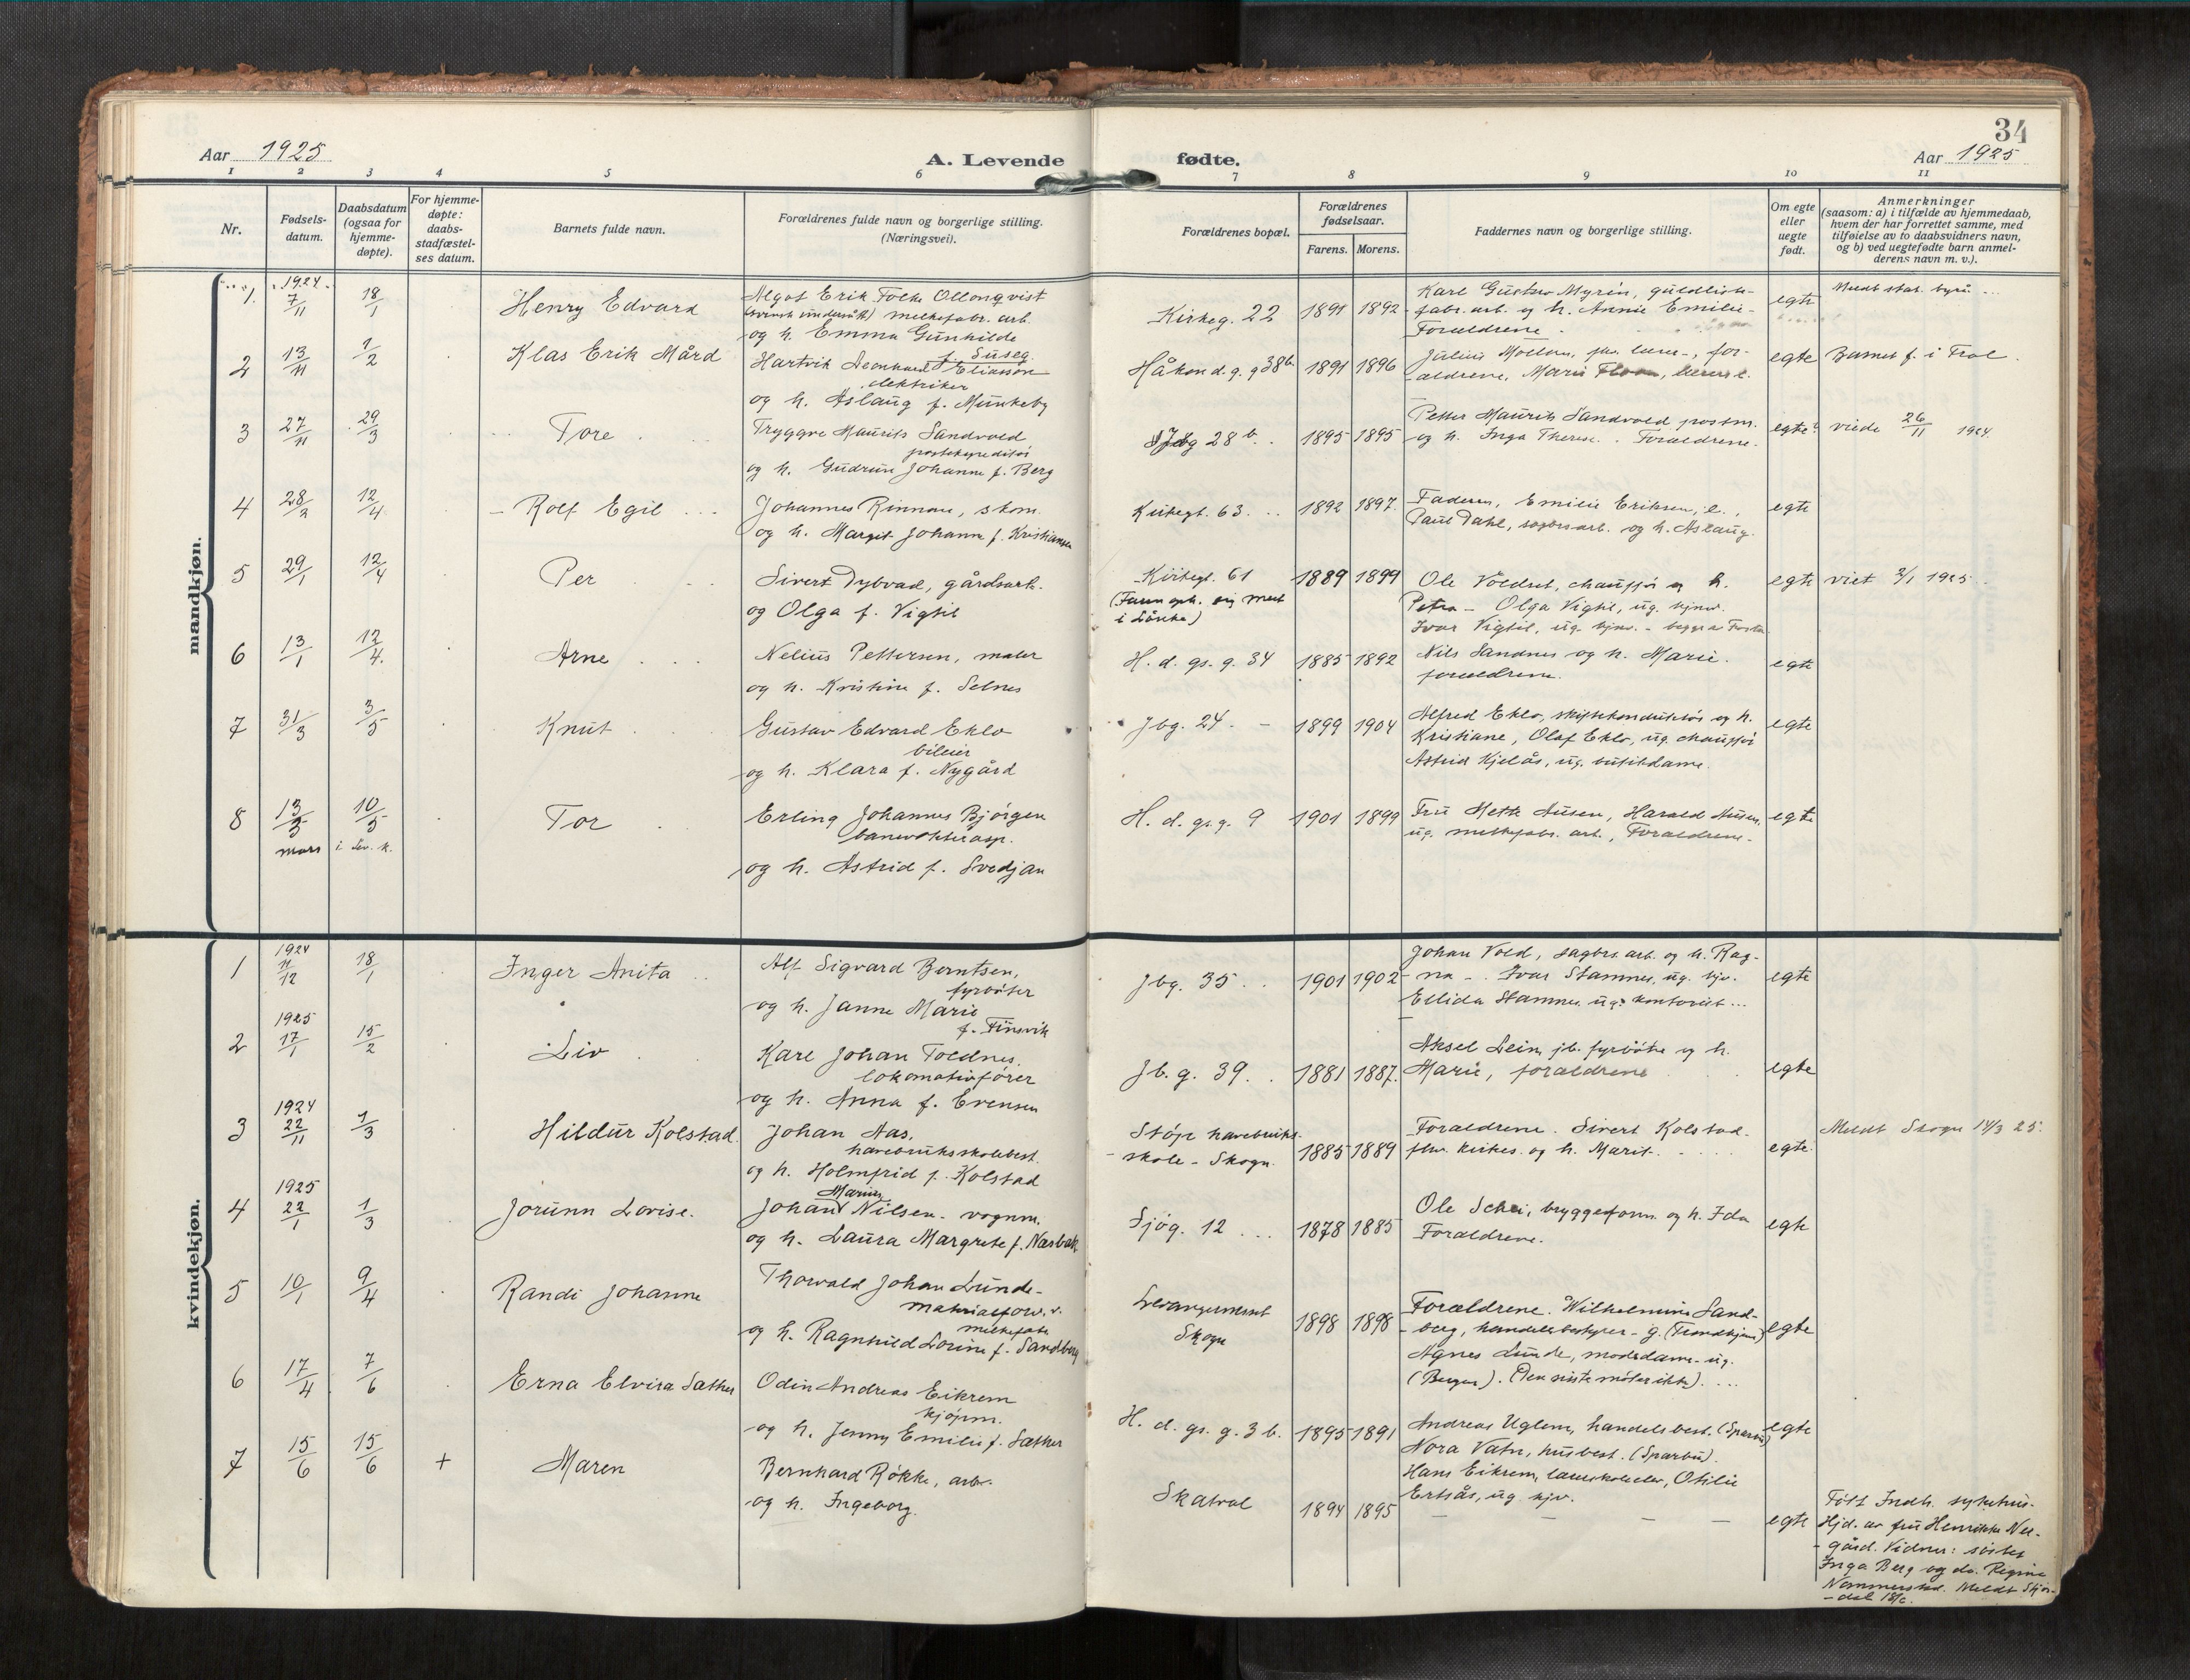 34
Aar 1925
A. Levende fødte.
Aar 1925
1 2 3 4 5 6 7 8 9 10 11
Nr.
Fødsels-
datum.
Daabsdatum
(ogsaa for
hjemme-
døpte).
For hjemme-
døpte:
daabs-
stadfæstel-
ses datum.
Barnets fulde navn.
Forældrenes fulde navn og borgerlige stilling.
(Næringsvei).
Forældrenes bopæl.
Forældrenes
fødselsaar.
Farens. Morens.
Faddernes navn og borgerlige stilling.
Om egte
eller
uegte
født.
Anmerkninger
(saasom: a) i tilfælde av hjemmedaab,
hvem der har forrettet samme, med
tilføielse av to daabsvidners navn,
og b) ved uegtefødte barn anmel-
derens navn m. v.).
mandkjøn.
1. 1924 7/11 18/1 Henry Edvard
Algot Erik Folke Ollonqvist
(svensk undersått) melkefabr. arb.
og h. Emma Gunhilde
f. Suseg.
Kirkeg. 22 1891 1892
Karl Gustav Myrén, guldliste-
fabr. arb. og h. Annie Emilie-
Forældrene.
egte
Meldt stat. byrå
2 13/11 1/2 Klas Erik Mård
Hartvik Leonhard Eliasson
elektriker
og h. Aslaug f. Munkeby
Håkon d. g. g 38b. 1891 1896
Julius Moellun, lærer-, for-
ældrene, Marie
egte
Barnet f. i Frol.
3 27/11 29/3 Tore
Tryggve Maurits Sandvold
postekspeditør
og h. Gudrun Johanne f. Berg
28 b. 1895 1895
Petter Maurits Sandvold postm.
og h. Inga Therese. Forældrene.
egte
viede 26/11 1924.
4 28/2 12/4 Rolf Egil
Johannes Rinnan, skom.
og h. Margit Johanne f. Kristiansen
Kirkegt. 63. 1892 1897.
Faderen, Emilie Eriksen, e.,
Paul Dahl, sagbrsarb. og h. Aslaug.
egte
5 29/1 12/4 Per
Sivert Dybvad, gårdsarb.
og Olga f. Vigtil
Kirkegt. 61
(Faren oph. sig mest
i Lånke)
1889 1899
Ole Voldset, chauffør og h.
Petra - Olga Vigtil, ug. tjnv.
Ivar Vigtil, ug. - begge a Frosta
egte
viet 3/1 1925.
6 13/1 12/4. Arne
Nelius Pettersen, maler
og h. Kristine f. Selnes
H. d. gs. g. 34 1885 1892
Nils Sandnes og h. Marie.
forældrene.
egte
7 31/3 3/5 Knut
Gustav Edvard Eklo
bileier
og h. Klara f. Nygård
Jbg. 24. 1899 1904
Alfred Eklo, skiftekonduktør og h.
Kristiane, Olaf Eklo, ug. chauffør
Astrid Hjelås, ug. butikdame.
egte
8 13/3 mars 10/5 i Lev. k. Tor
Erling Johannes Bjørgen
banevokterasp.
og h. Astrid f. Svedjan
H. d. gs. g. 9 1901 1899
Fru Meth Ausen, Harald Ausen,
ug. melkefabr. arb., Forældrene.
egte
kvindekjøn.
1 1924 11/12 18/1 Inger Anita
Alf Sigvard Berntsen,
fyrbøter
og h. Janne Marie
f. Finsvik
Jbg. 35 1901 1902
Johan Vold, sagbrs. arb. og h. Rag-
na - Ivar Stamnes, ug. tjv.
Ellida Stamnes, ug. kontorist
egte
2 1925 17/1 15/2 Liv
Karl Johan Toldnes.
lokomotivfører
og h. Anna f. Evensen
Jb. g. 39. 1881 1887.
Aksel Lein, jb. fyrbøter og h.
Marie, forældrene
egte
3 1924 22/11 1/3 Hildur Kolstad
Johan Aas,
havebruksskolebest.
og h. Holmfrid f. Kolstad
Støp havebruks-
skole - Skogn. 1885 1889
Forældrene. Sivert Kolstad
fhv. kirkes. og h. Marit.
egte
Meldt Skogn 14/3 25.
4 1925 22/1 1/3 Jorunn Lovise.
Marius
Johan Nilsen - vognm.
og h. Laura Margrete f. Næsbak
Sjøg. 12 1878 1885
Ole Schei, bryggeform. og h. Ida
Forældrene.
egte
5 10/1 9/4 Randi Johanne
Thorvald Johan Lunde-
materialforv. v.
melkefabr
og h. Ragnhild Lorine f. Sandberg
Levangernesset
Skogn 1898 1898
Forældrene. Wilhelmine Sand-
berg, handelsbestyrer - g. (Trondhjem)
Agnes Lunde, modedame - ug.
(Bergen). (Den siste møter ikke).
egte
6 17/4 7/6 Erna Elvira Sæther
Odin Andreas Eikrem
kjøpm.
og h. Jenny Emilie f. Sæther
H. d. gs. g. 3 b. 1895 1891
Andreas Uglem, handelsbest. (Sparbu)
Nora Vatn, husbest. (Sparbu).
Hans Eikrem, lærerskoleelev, Otilie
Ertsås, ug. tjv.
egte
7 15/6 15/6 + Maren
Bernhard Røkke, arb.
og h. Ingeborg.
Skatval 1894 1895
— — — —
egte
Født Indh. sykehus.
Hjd. av fru Henrikke Nes-
gård. Vidner: søster
Inga Berg og do. Regine
Nommerstad. Meldt Stjør-
dal 18/6.